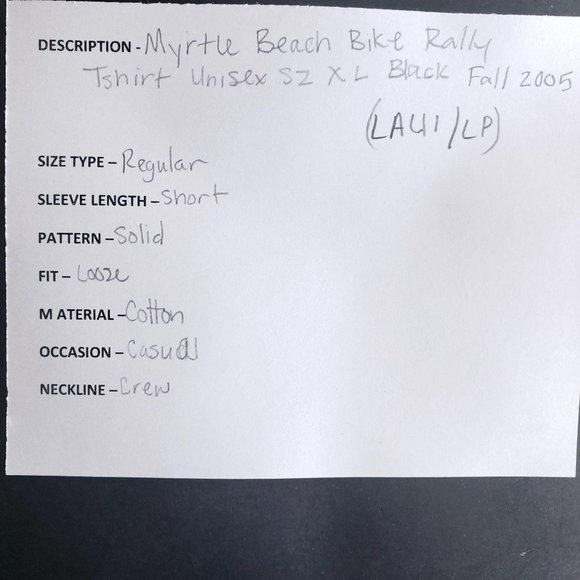 DESCRIPTION - Myrtle Beach Bike Rally
Tshirt Unisex SZ XL Black Fall 2005
(LAU1/LP)
SIZE TYPE – Regular
SLEEVE LENGTH – Short
PATTERN – Solid
FIT – Loose
M ATERIAL – Cotton
OCCASION – Casual
NECKLINE – Crew